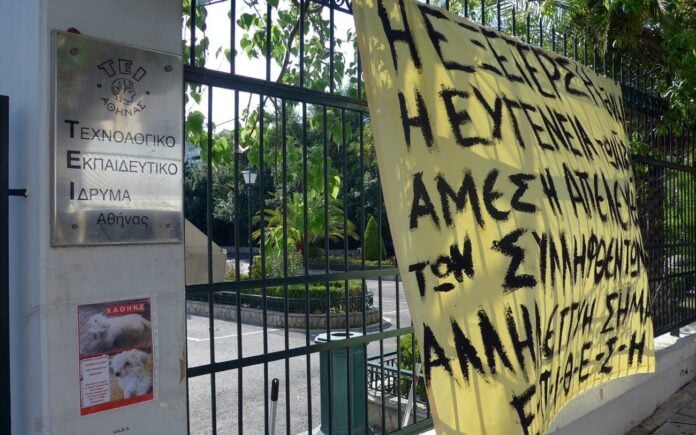 ΤΕΙ
ΑΘΗΝΑΣ
ΤΕΧΝΟΛΟΓΙΚΟ
ΕΚΠΑΙΔΕΥΤΙΚΟ
ΙΔΡΥΜΑ
Αθήνας
ΧΑΘΗΚΕ
Η ΕΞΕΓΕΡΣΗ ΕΙΝΑΙ
Η ΕΥΓΕΝΕΙΑ ΤΟΥ
ΑΜΕΣΗ ΑΠΕΛΕΥ
ΤΩΝ ΣΥΛΛΗΦΘΕΝΤΩΝ
ΑΛΛΗΛΕΓΓΥΗ ΣΗΜΑ
ΕΠΙΘ-Ε-Σ-Η